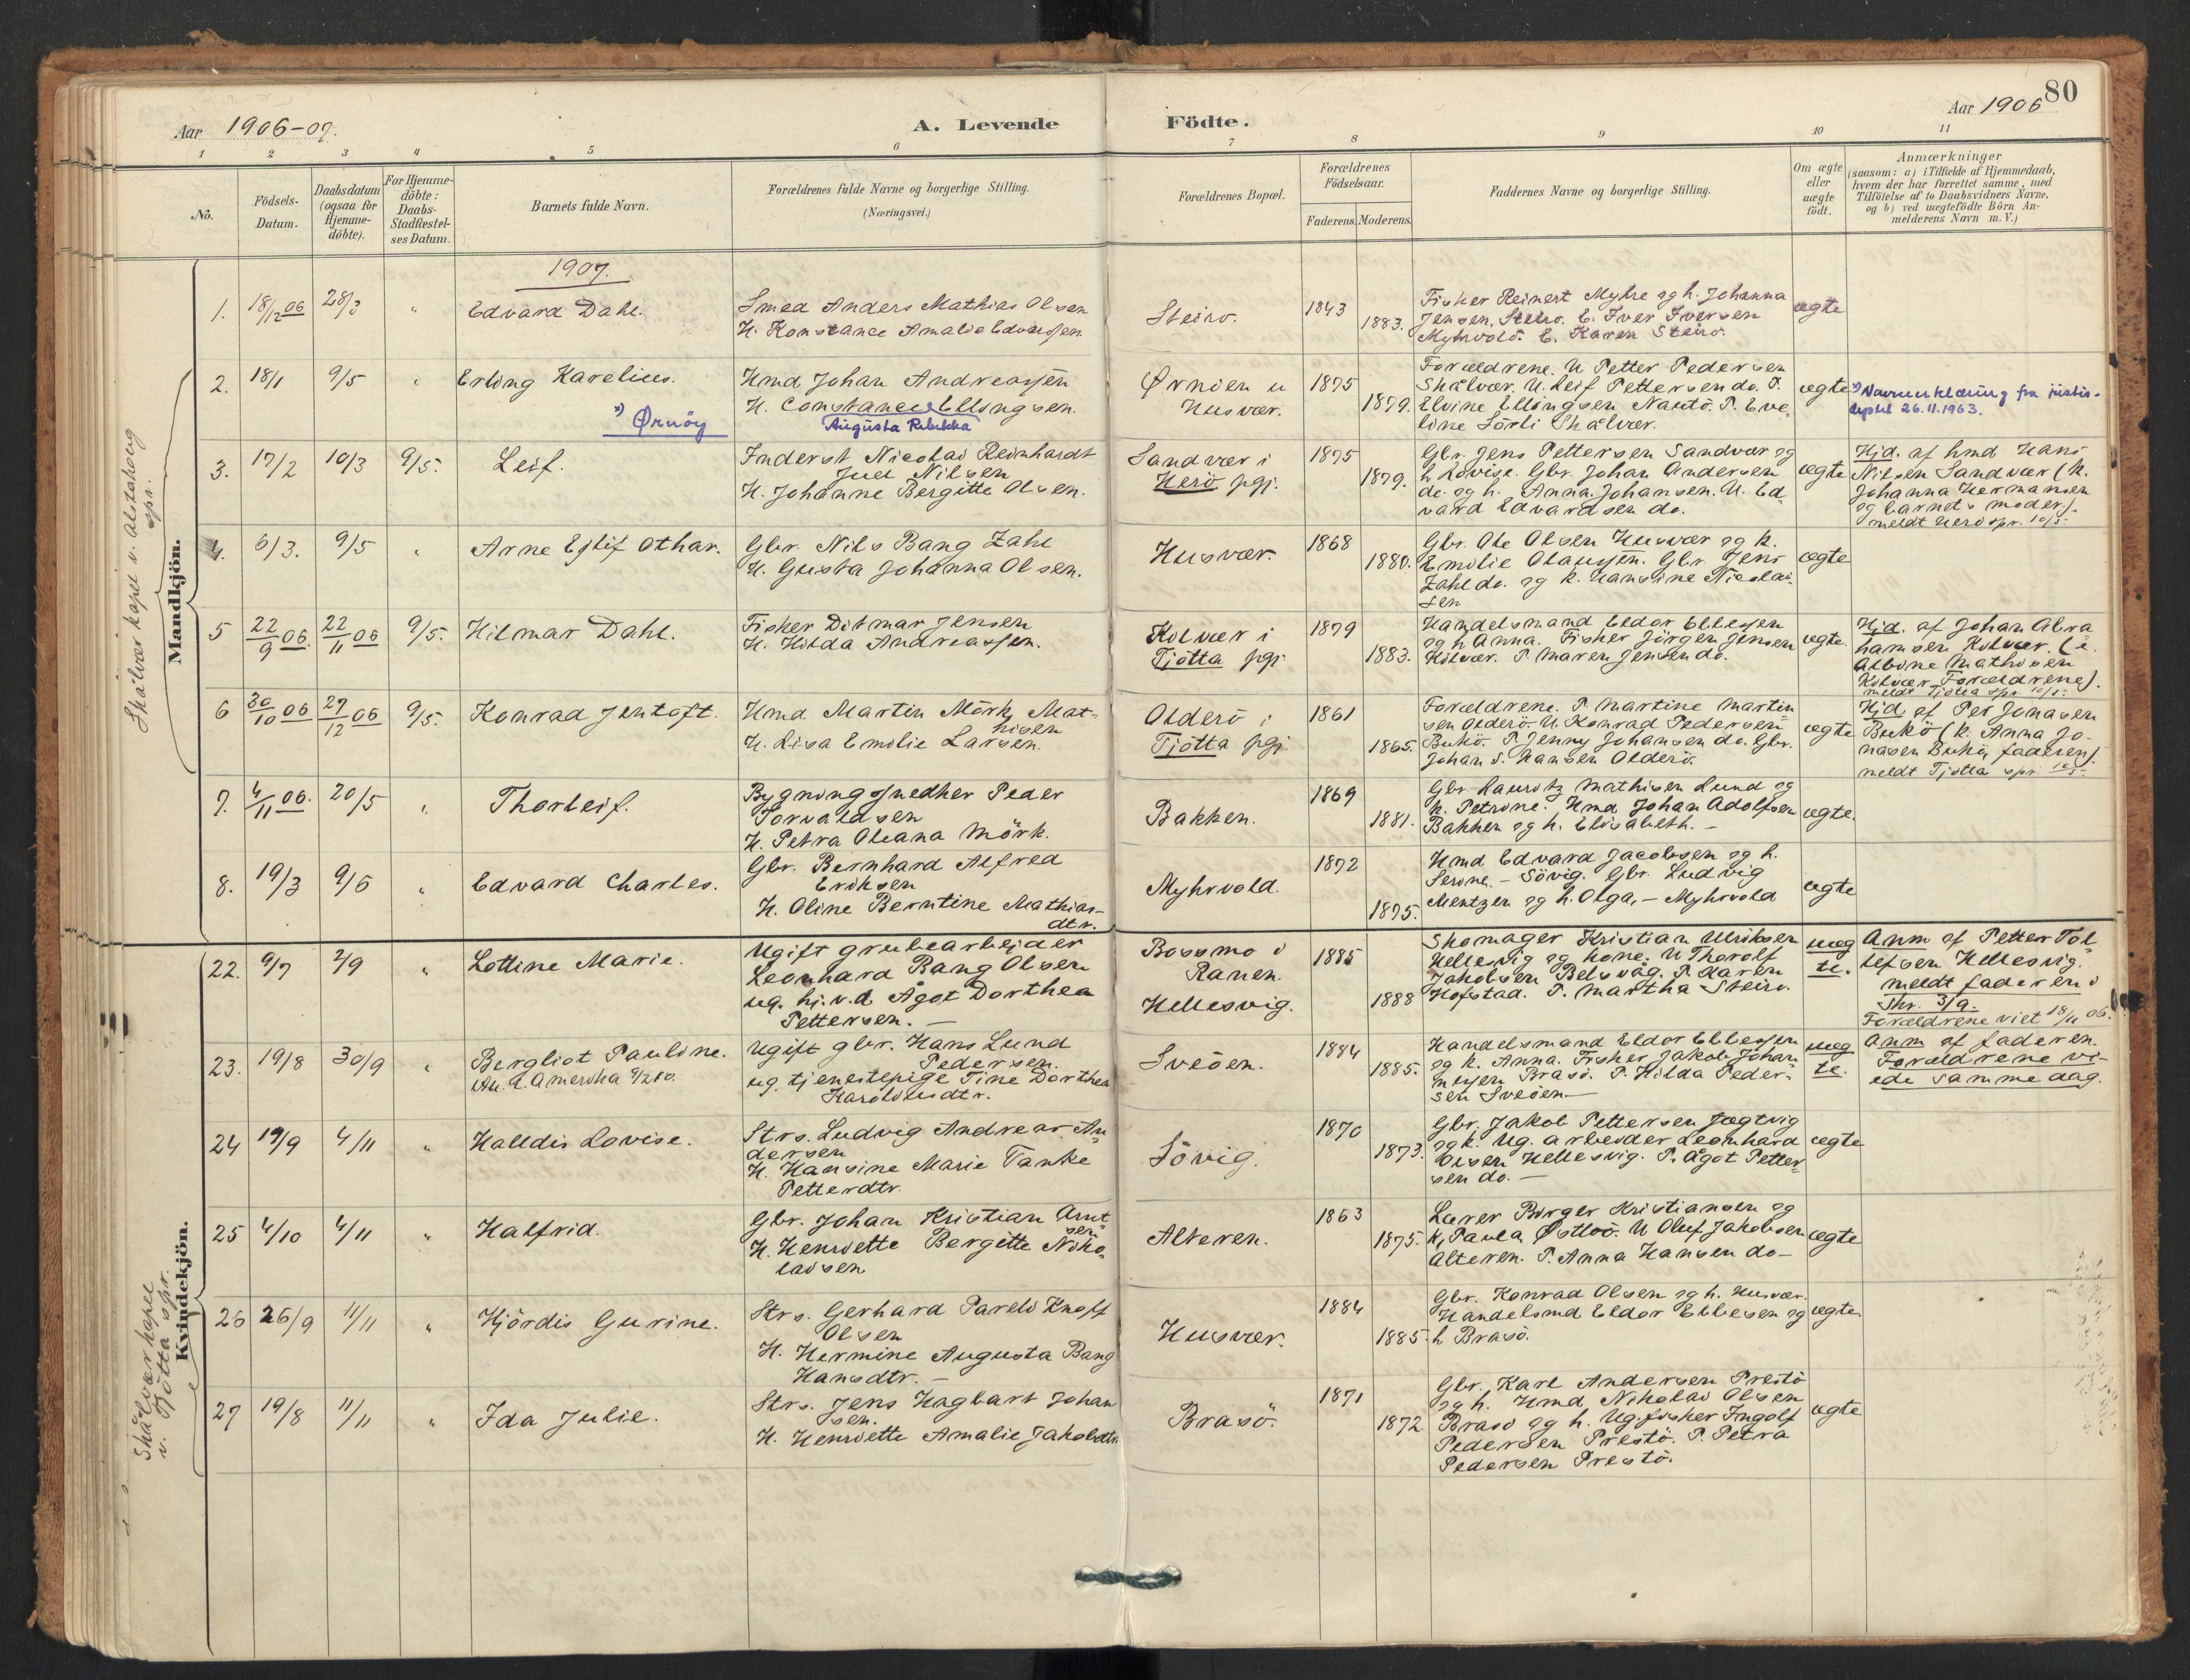 80
Aar 1906-07.
A. Levende
Födte.
Aar 1906
1 2 3 4 5 6 7 8 9 10 11
No.
Födsels-
Datum.
Daabsdatum
(ogsaa for
Hjemme-
döbte).
For Hjemme-
döbte:
Daabs-
Stadfæstel-
ses Datum.
Barnets fulde Navn.
Forældrenes fulde Navne og borgerlige Stilling.
(Næringsvei.)
Forældrenes Bopæl.
Forældrenes
Födselsaar.
Faderens. Moderens.
Faddernes Navne og borgerlige Stilling.
Om ægte
eller
uægte
födt.
Anmærkninger
(saasom: a) i Tilfælde af Hjemmedaab,
hvem der har forrettet samme, med
Tilföielse af to Daabsvidners Navne,
og b) ved uægtefödte Börn An-
melderens Navn m. V.)
Skålvær kapel v. Alstahoug
spr.
Mandkjön.
1907.
1. 18/12 06 28/3 " Edvard Dahl.
Smed Anders Mathias Olsen
H. Konstance Amalie Edvardsen.
Steiro.
1843
1883.
Fisker Reinert Myhre og h. Johanna
Jensen, Steiro. E. Iver Iversen
Myhrvold. E. Karen Steiro.
ægte
2. 18/1 9/5 " Erling Karelius.
x) Ørnöy
Hmd Johan Andreassen
H. Constance Ellingsen.
Augusta Rebekka
Ørnöen u
Husvær.
1875
1879.
Forældrene. U Petter Pedersen
Skålvær. U. Leif Pettersen do. P.
Elvine Ellingsen Nautö. P. Eve-
line Sörli Skålvær.
ægte
x) Navneerklæring fra justis-
dept 26.11.1963.
3. 17/2 10/3 9/5. Leif.
Inderst Nicolai Reinhardt
Juel Nilsen
H. Johanne Bergitte Olsen.
Sandvær i
Herö pgj.
1875
1879.
Gbr. Jens Pettersen Sandvær og
h Lovise. Gbr. Johan Andersen
do. og h. Anna. Johansen. U. Ed-
vard Edvardsen do.
ægte
Hjd. af hmd Hans
Nilsen Sandvær (k.
Johanna Hermansen
og barnets moder).
meldt Herö spr. 10/5.
4. 6/3. 9/5 " Arne Eglif Othar.
Gbr. Nils Bang Zahl
H. Gusta Johanna Olsen.
Husvær.
1868
1880.
Gbr. Ole Olsen Husvær og k.
Emilie Olaussen. Gbr. Jens
Zahl do. og k. Hansine Nicolai-
sen
ægte
5 22/9 06. 22/11 06 9/5. Hilmar Dahl.
Fisker Ditmar Jensen
H. Hilda Andreassen.
Kolvær i
Tjötta pgj.
1879
1883.
Handelsmand Eldor Ebbesen
og h Anna. Fisker Jörgen Jensen
Kolvær. P. Maren Jensen do.
ægte.
Hjd. af Johan Abra
hamsen Kolvær. (e.
Albine Mathisen
Kolvær Forældrene).
meldt Tjötta spr. 10/5.
6 30/10 06 27/12 06 9/5. Konrad Jentoft.
Hmd. Martin Mörk Mat-
hisen
H. Lisa Emilie Larsen.
Olderö i
Tjötta pgj.
1861
1865.
Forældrene. P. Martine Martin
sen Olderö. U. Konrad Pedersen
Bukö. P. Jenny Johansen do. Gbr.
Johan S. Hansen Olderö.
ægte
Hjd af Per Jonasen
Bukö (k. Anna Jo-
nasen Bukö, faderen).
meldt Tjötta spr. 10/5.
7. 4/11 06. 20/5 " Thorleif.
Bygningssnedker Peder
Torvaldsen
H. Petra Oleana Mörk.
Bakken.
1869
1881.
Gbr Lauritz Mathisen Lund og
k. Petrine. Hmd Johan Adolfsen
Bakken og h. Elisabeth. -
ægte.
8. 19/3 9/5 " Edvard Charles.
Gbr. Bernhard Alfred
Eriksen
H. Oline Berntine Mathias-
dtr.
Myhrvold.
1872
1875.
Hmd Edvard Jacobsen og h.
Serine. - Sövig. Gbr. Ludvig
Mentzen og h. Olga, - Myhrvold
ægte
Skålvær kapel
v. Tjötta spr.
Kvindekjön.
22. 9/7 2/9 " Lottine Marie.
Ugift grubearbejder
Leonhard Bang Olsen
ug. hj. v. d Ågot Dorthea
Pettersen. -
Bossmo i
Ranen.
Hellesvig.
1885
1888
Skomager Kristian Ulriksen
Hellesvig og kone. U Thorolf
Jakobsen Belsvåg. P. Karen
Hofstad. P. Martha Steiro.
uæg
te.
Anm af Petter Tol-
lefsen Hellesvig.
meldt faderen i
Skr. 3/9.
Forældrene viet 18/11 06.
23. 19/8 30/9 " Bergliot Pauline.
Ugift gbr. Hans Lund
Pedersen.
ug. tjenestepige Tine Dorthea
Haroldsdtr.
Sveöen.
1884
1885.
Handelsmand Eldor Ebbesen
og k. Anna. Fisker Jakob Johan
nesen Brasö. P. Hilda Peder-
sen Sveöen -
uæg
te.
Anm af faderen.
Forældrene vi-
ede samme dag.
24 19/9 4/11 " Halldis Lovise.
Strs. Ludvig Andreas An-
dersen
H. Hansine Marie Tanke
Petterdtr.
Sövig.
1870
1873.
Gbr. Jakob Pettersen Jægtvig
og k. Ug. arbeider Leonhard
Olsen Hellesvig. P. Ågot Petter-
sen do. -
ægte
25 4/10 4/11 " Halfrid.
Gbr. Johan Kristian Arnt
sen
H. Henriette Bergitte Niko-
laisen
Alteren.
1863
1875.
Lærer Birger Kristiansen og
k, Paula Østbö. U Oluf Jakobsen
Alteren. P. Anna Hansen do -
ægte
26 26/9 11/11 " Hjördis Gurine.
Strs. Gerhard Pareli Knoff
Olsen
H. Hermine Augusta Bang
Hansdtr. -
Husvær.
1884
1885.
Gbr. Konrad Olsen og h. Husvær.
Handelsmd Eldor Ebbesen og
h Brasö.
ægte
27 19/8 11/11 " Ida Julie.
Strs. Jens Hagbart Johan
sen.
H. Henriette Amalie Jakobdtr
Brasö.
1871
1872
Gbr. Karl Andersen Prestö
og h. Hmd Nikolai Olsen
Brasö og h. Ug. fisker Ingolf
Pedersen Prestö. P. Petra
Pedersen Prestö.
ægte